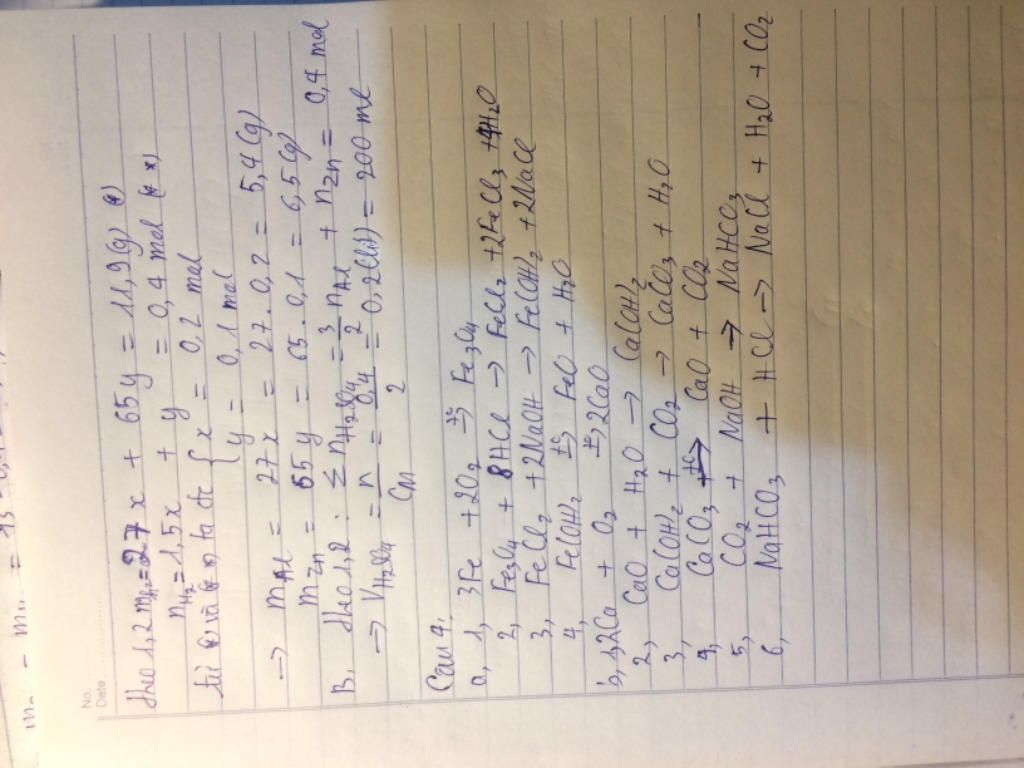 No.
Date
theo 1,2 mhh = 27x + 65y = 11,9(g) (*)
nH2 = 1,5x + y = 0,4 mol (**)
từ (*) và (**) ta đc { x = 0,2 mol
y = 0,1 mol
→ mAl = 27x = 27.0,2 = 5,4(g)
mZn = 65y = 65.0,1 = 6,5(g)
B, theo 1,2 : Σ nH2SO4 = 3/2 nAl + nZn = 0,4 mol
→ VH2SO4 = n/CM = 0,4/2 = 0,2(lít) = 200 ml
Câu 4.
a, 1, 3Fe + 2O2 t°→ Fe3O4
2, Fe3O4 + 8HCl → FeCl2 + 2FeCl3 + 4H2O
3, FeCl2 + 2NaOH → Fe(OH)2 + 2NaCl
4, Fe(OH)2 t°→ FeO + H2O
b, 1, 2Ca + O2 t°→ 2CaO
2, CaO + H2O → Ca(OH)2
3, Ca(OH)2 + CO2 → CaCO3 + H2O
4, CaCO3 t°→ CaO + CO2
5, CO2 + NaOH → NaHCO3
6, NaHCO3 + HCl → NaCl + H2O + CO2